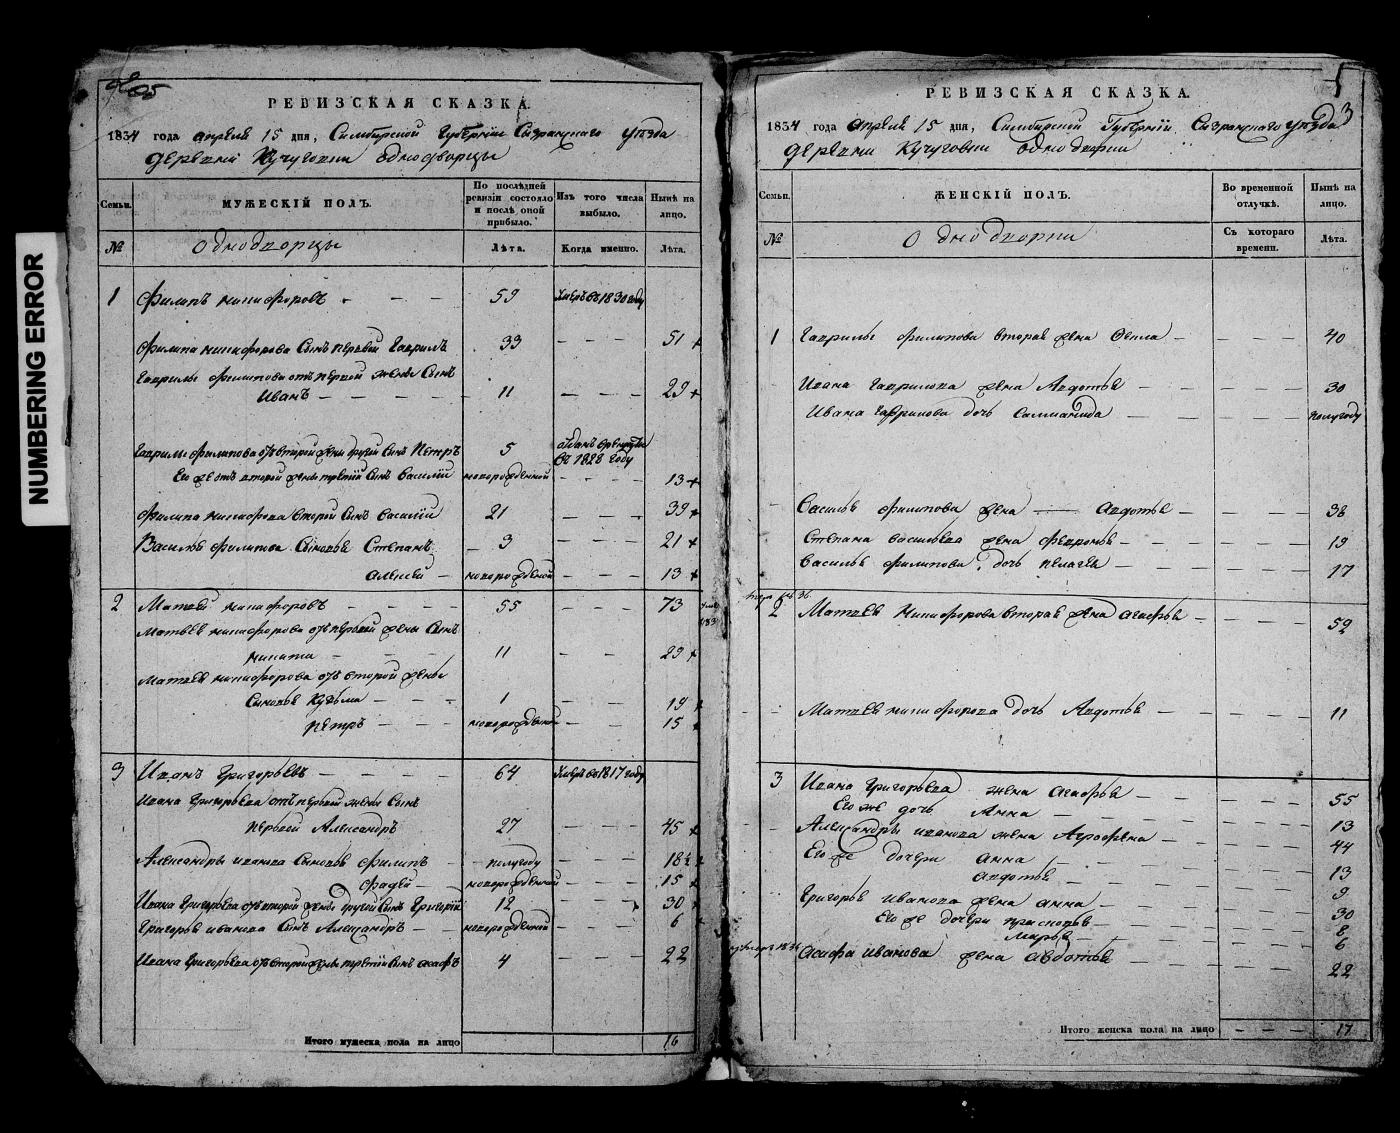 NUMBERING ERROR
РЕВИЗСКАЯ СКАЗКА.
1834 года апреля 15 дня, Симбирской Губернии Сызранского уезда
деревни Кучуговки однодворцы
Семьи.
МУЖЕСКІЙ ПОЛЪ.
По послѣдней ревизіи состояло и послѣ оной прибыло.
Изъ того числа выбыло.
Нынѣ на лицо.
№
Однодворцы
Лѣта.
Когда именно.
Лѣта.
1 Филипъ Никифоровъ 59 умеръ въ 1830 году
Филипа Никифорова сынъ первой Гаврилъ 33 51
Гаврилы Филипова отъ первой жены сынъ
Иванъ 11 29
Гаврилы Филипова отъ второй жены другой сынъ Петръ 5 отданъ в рекруты в 1828 году
Его же отъ второй жены третий сынъ Василий новорожденной 13
Филипа Никифорова второй сынъ Василий 21 39
Василья Филипова сыновья Степанъ 3 21
Алексей новорожденной 13
2 Матвей Никифоровъ 55 73
Матвея Никифорова отъ первой жены сынъ
Никита 11 29
Матвея Никифорова отъ второй жены
сыновья Кузьма 1 19
Петръ новорожденной 15
3 Иванъ Григорьевъ 64 умеръ въ 1817 году
Ивана Григорьева отъ первой жены сынъ
первой Александръ 27 45
Александры Иванова сыновья Филипъ полугоду 18½
Фадей новорожденной 15
Ивана Григорьева отъ второй жены другой сынъ Григорий 12 30
Григорья Иванова сынъ Александръ новорожденной 6
Ивана Григорьева отъ второй жены третий сынъ Асафъ 4 22
Итого мужеска пола на лицо 16
3
РЕВИЗСКАЯ СКАЗКА.
1834 года апреля 15 дня, Симбирской Губернии Сызранского уезда
деревни Кучуговки однодворки
Семьи.
ЖЕНСКІЙ ПОЛЪ.
Во временной отлучкѣ.
Нынѣ на лицо.
№
Однодворки
Съ котораго времени.
Лѣта.
1 Гаврилы Филипова вторая жена Фекла 40
Ивана Гаврилова жена Авдотья 30
Ивана Гаврилова дочь Саломанида полугоду
Василья Филипова жена Авдотья 38
Степана Васильева жена Февронья 19
Василья Филипова дочь Пелагея 17
2 Матвея Никифорова вторая жена Агафья 52
Матвея Никифорова дочь Авдотья 11
3 Ивана Григорьева жена Агафья 55
Его же дочь Анна 13
Александры Иванова жена Агрофена 44
Его же дочери Анна 13
Авдотья 9
Григорья Иванова жена Анна 30
Его же дочери Прасковья 8
Марья 6
Асафа Иванова жена Авдотья 22
Итого женска пола на лицо 17